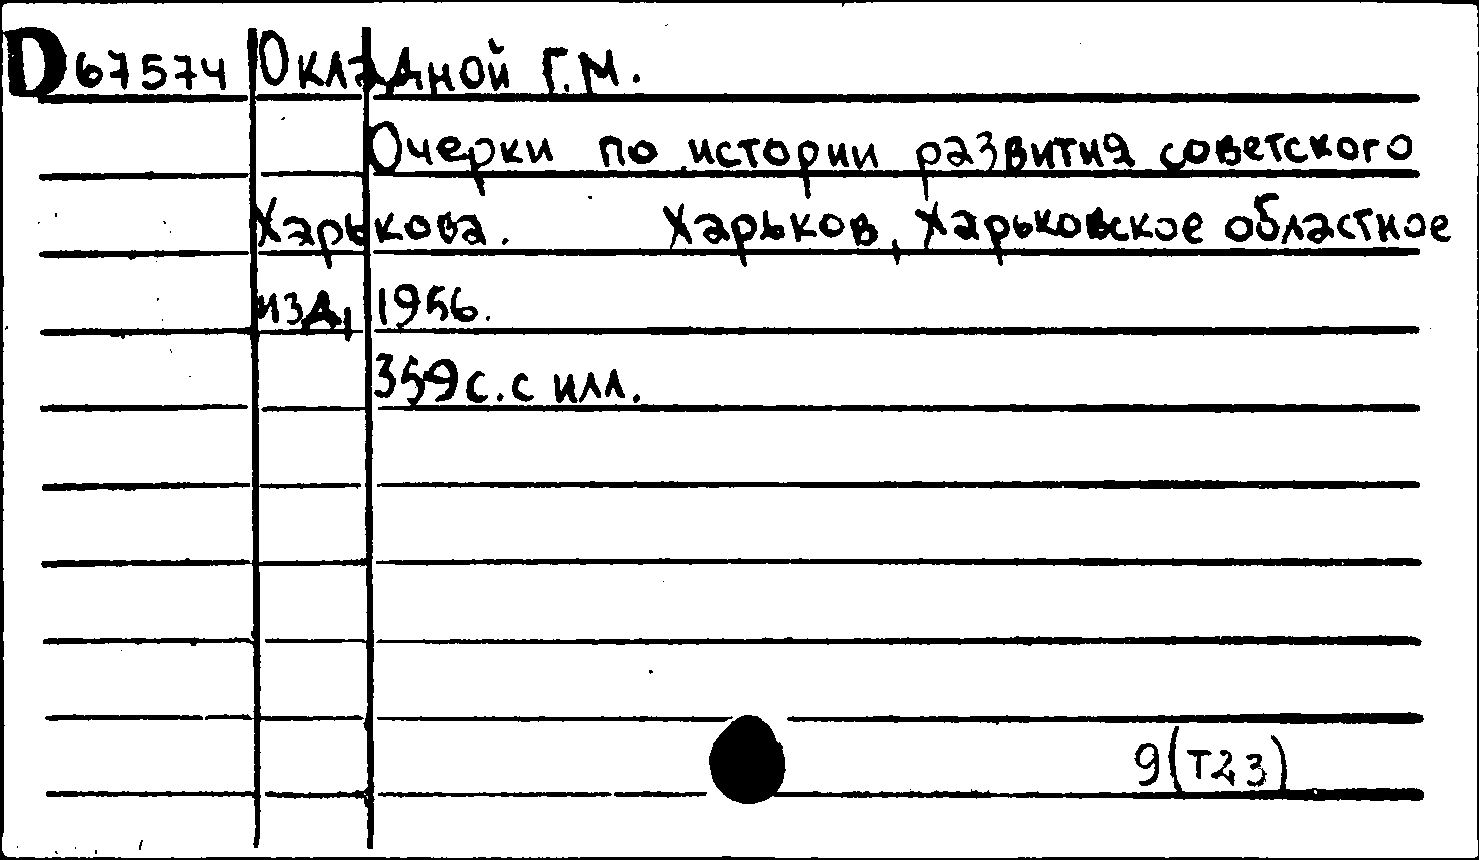 D 67574 Окладной Г.М.
Очерки по истории развития советского
Харькова. Харьков, Харьковское областное
изд, 1956.
359 с. с илл.
9(т23)